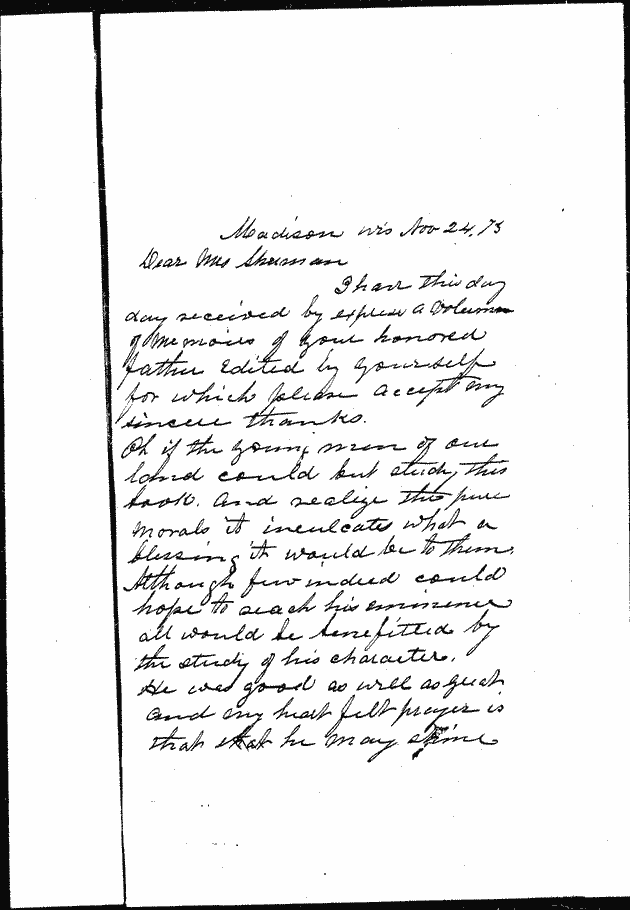 Madison Wis Nov 24, 73
Dear Mrs Sherman
I have this day
day received by express a volumn
of Memoirs of your honored
father Edited by yourself
for which please accept my
sincere thanks.
Oh if the young men of our
land could but study this
book. and realize the pure
morals it inculcates what a
blessing it would be to them.
Although few indeed could
hope to reach his eminence
all would be benefitted by
the study of his character.
He was good as well as great
and my heart felt prayer is
that that he may shine